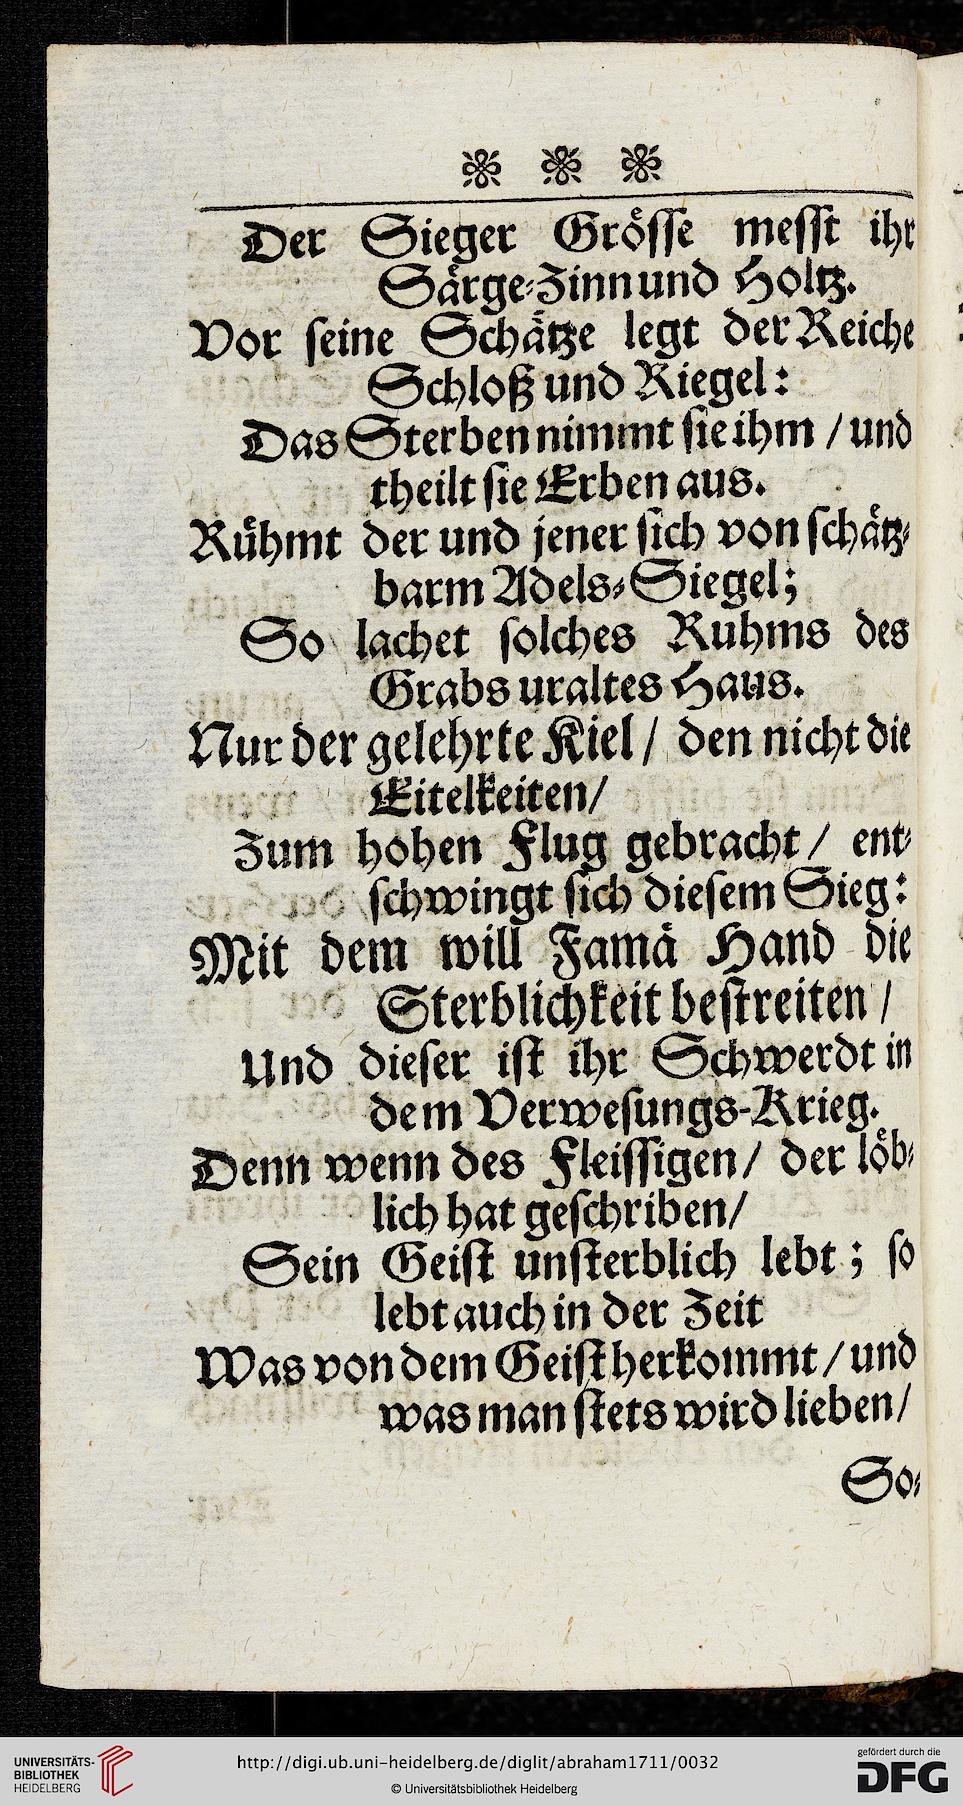 Der Sieger Gröſſe meſſt ihr
Särge-Zinn und Holtz.
Vor ſeine Schätze legt der Reiche
Schloß und Riegel:
Das Sterben nimmt ſie ihm / und
theilt ſie Erben aus.
Rühmt der und jener ſich von ſchätz-
barm Adels-Siegel;
So lachet ſolches Ruhms des
Grabs uraltes Haus.
Nur der gelehrte Kiel / den nicht die
Eitelkeiten /
Zum hohen Flug gebracht / ent-
ſchwingt ſich dieſem Sieg:
Mit dem will Famä Hand die
Sterblichkeit beſtreiten /
Und dieſer iſt ihr Schwerdt in
dem Verweſungs-Krieg.
Denn wenn des Fleiſſigen / der löb-
lich hat geſchriben /
Sein Geiſt unſterblich lebt ; ſo
lebt auch in der Zeit
Was von dem Geiſt herkommt / und
was man ſtets wird lieben /
So-
UNIVERSITÄTS-
BIBLIOTHEK
HEIDELBERG
http://digi.ub.uni-heidelberg.de/diglit/abraham1711/0032
© Universitätsbibliothek Heidelberg
gefördert durch die
DFG